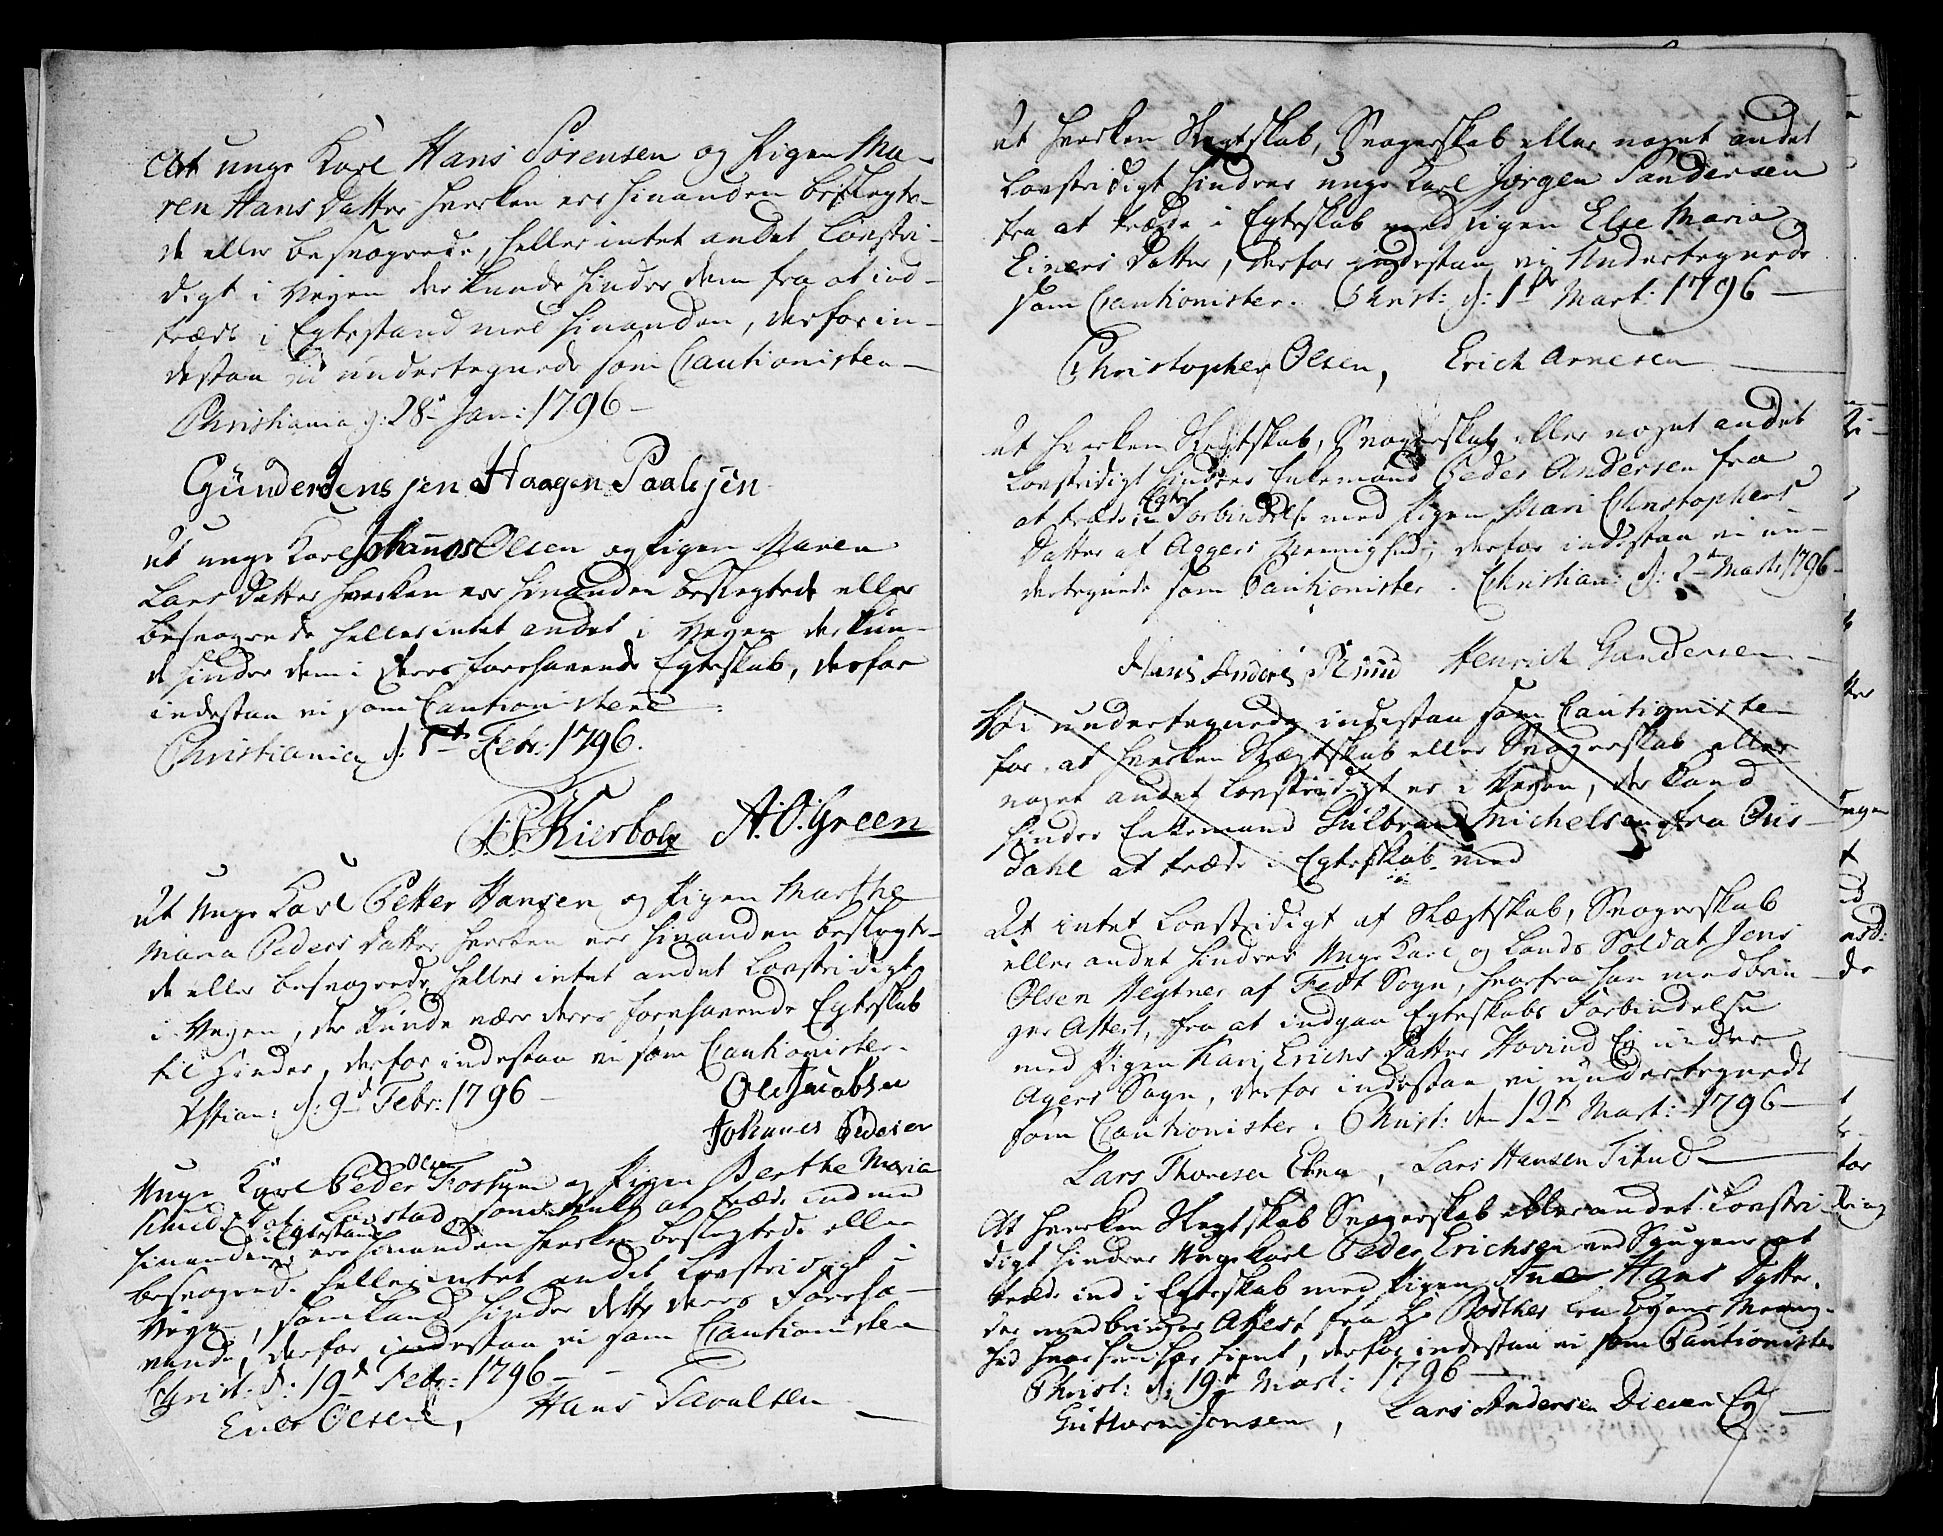 At unge Karl Hans Sörensen og Pigen Ma-
ren Hans Datter hverken ere hinanden beslegte-
de eller besvogrede, heller intet andet Lovstri-
digt i Veyen der kunde hindre dem fra at ind-
træde i Egtestand med hinanden, derfor in-
destaa vi undertegnede som Cautionister
Christiania d: 28 Jan: 1796
Günder Jensjen Haagen Paalsjen
At unge Karl Johannes Olsen og Pigen Maren
Lars Datter hverken ere hinanden beslegtede eller
besvogrede heller intet andet i Veyen der kun-
de hindre dem i deres forehavende Egteskab, derfor
indestaa vi som Cautionistere
Christiania d: 1te Febr: 1796.
Kierbole A: O: Green
At Unge Karl Petter Hansen og Pigen Marthe
Maria Peders Datter hverken ere hinanden beslegte-
de eller besvogrede heller intet andet Lovstridigt
i Veyen, der kunde være deres forehavende Egteskab
til Hinder, derfor indestaa vi som Cautionister.
Xstian: d: 9d Febr: 1796 Ole Jacobsen
Johannes Pedersen
Unge Karl Peder Olsen Fossum og Pigen Berthe Maria
Knuds Dat: som at træde ind med
hinanden i Egtestand ere hinanden hverken beslegtede eller
besvogrede heller intet andet Lovstridigt i
Veyen, som kand hindre dette deres Foreha-
vende, derfor indestaa vi som Cautionister
Christ: d: 19d Febr: 1796
Ener Olsen, Hans
At hverken Slegtskab, Svogerskab eller noget andet
Lovstridigt hindrer unge Karl Jörgen Sandersen
fra at træde i Egteskab med Pigen Else Maria
Einers Datter, derfor indestaa vi Undertegnede
som Cautionister. Christ: d: 1te Mart: 1796
Christopher Olsen, Erich Arnesen
At hverken Slegtskab, Svogerskab eller noget andet
Lovstridigt hindrer Enkemand Peder Andersen fra
at træde i Egte Forbindelse med Pigen Mari Christophers
Datter af Aggers Menighed, derfor indestaa vi un-
dertegnede som Cautionister. Christian: d: 2den Marts 1796
Hans Anders Ruud Henrich Gundersen
Vi undertegnede indestaa som Cautionister
for, at hverken Slægtskab eller Svogerskab eller
noget andet Lovstridigt er i Veyen, der kand
hindre Enkemand Gulbrand Michelsen fra
Dahl at træde i Egteskab med
At intet Lovstridigt af Slægtskab, Svogerskab
eller andet hindrer Unge Karl og Lands Soldat Jens
Olsen af Fedt Sogn, hvorfra han medbrin-
ger Attest, fra at indgaa Egteskabs Forbindelse
med Pigen Kari Erichs Datter Hovind Eje under
Agers Sogn, derfor indestaa vi undertegnede
som Cautionister. Christ: den 12te Mart: 1796
Lars Thoresen, Lars Hansen
At hverken Slegtskab Svogerskab eller andet Lovstri-
digt hindrer Ungekarl Peder Erichsen ved at
træde ind i Egteskab med Pigen Ane Hans Datter,
der medbringer Attest fra Hr fra Byens Menig-
hed hvor hun har tient, derfor indestaa vi som Cautionister
Christ: d: 19de Mart: 1796
Guttorm Jonsen, Lars Andersen